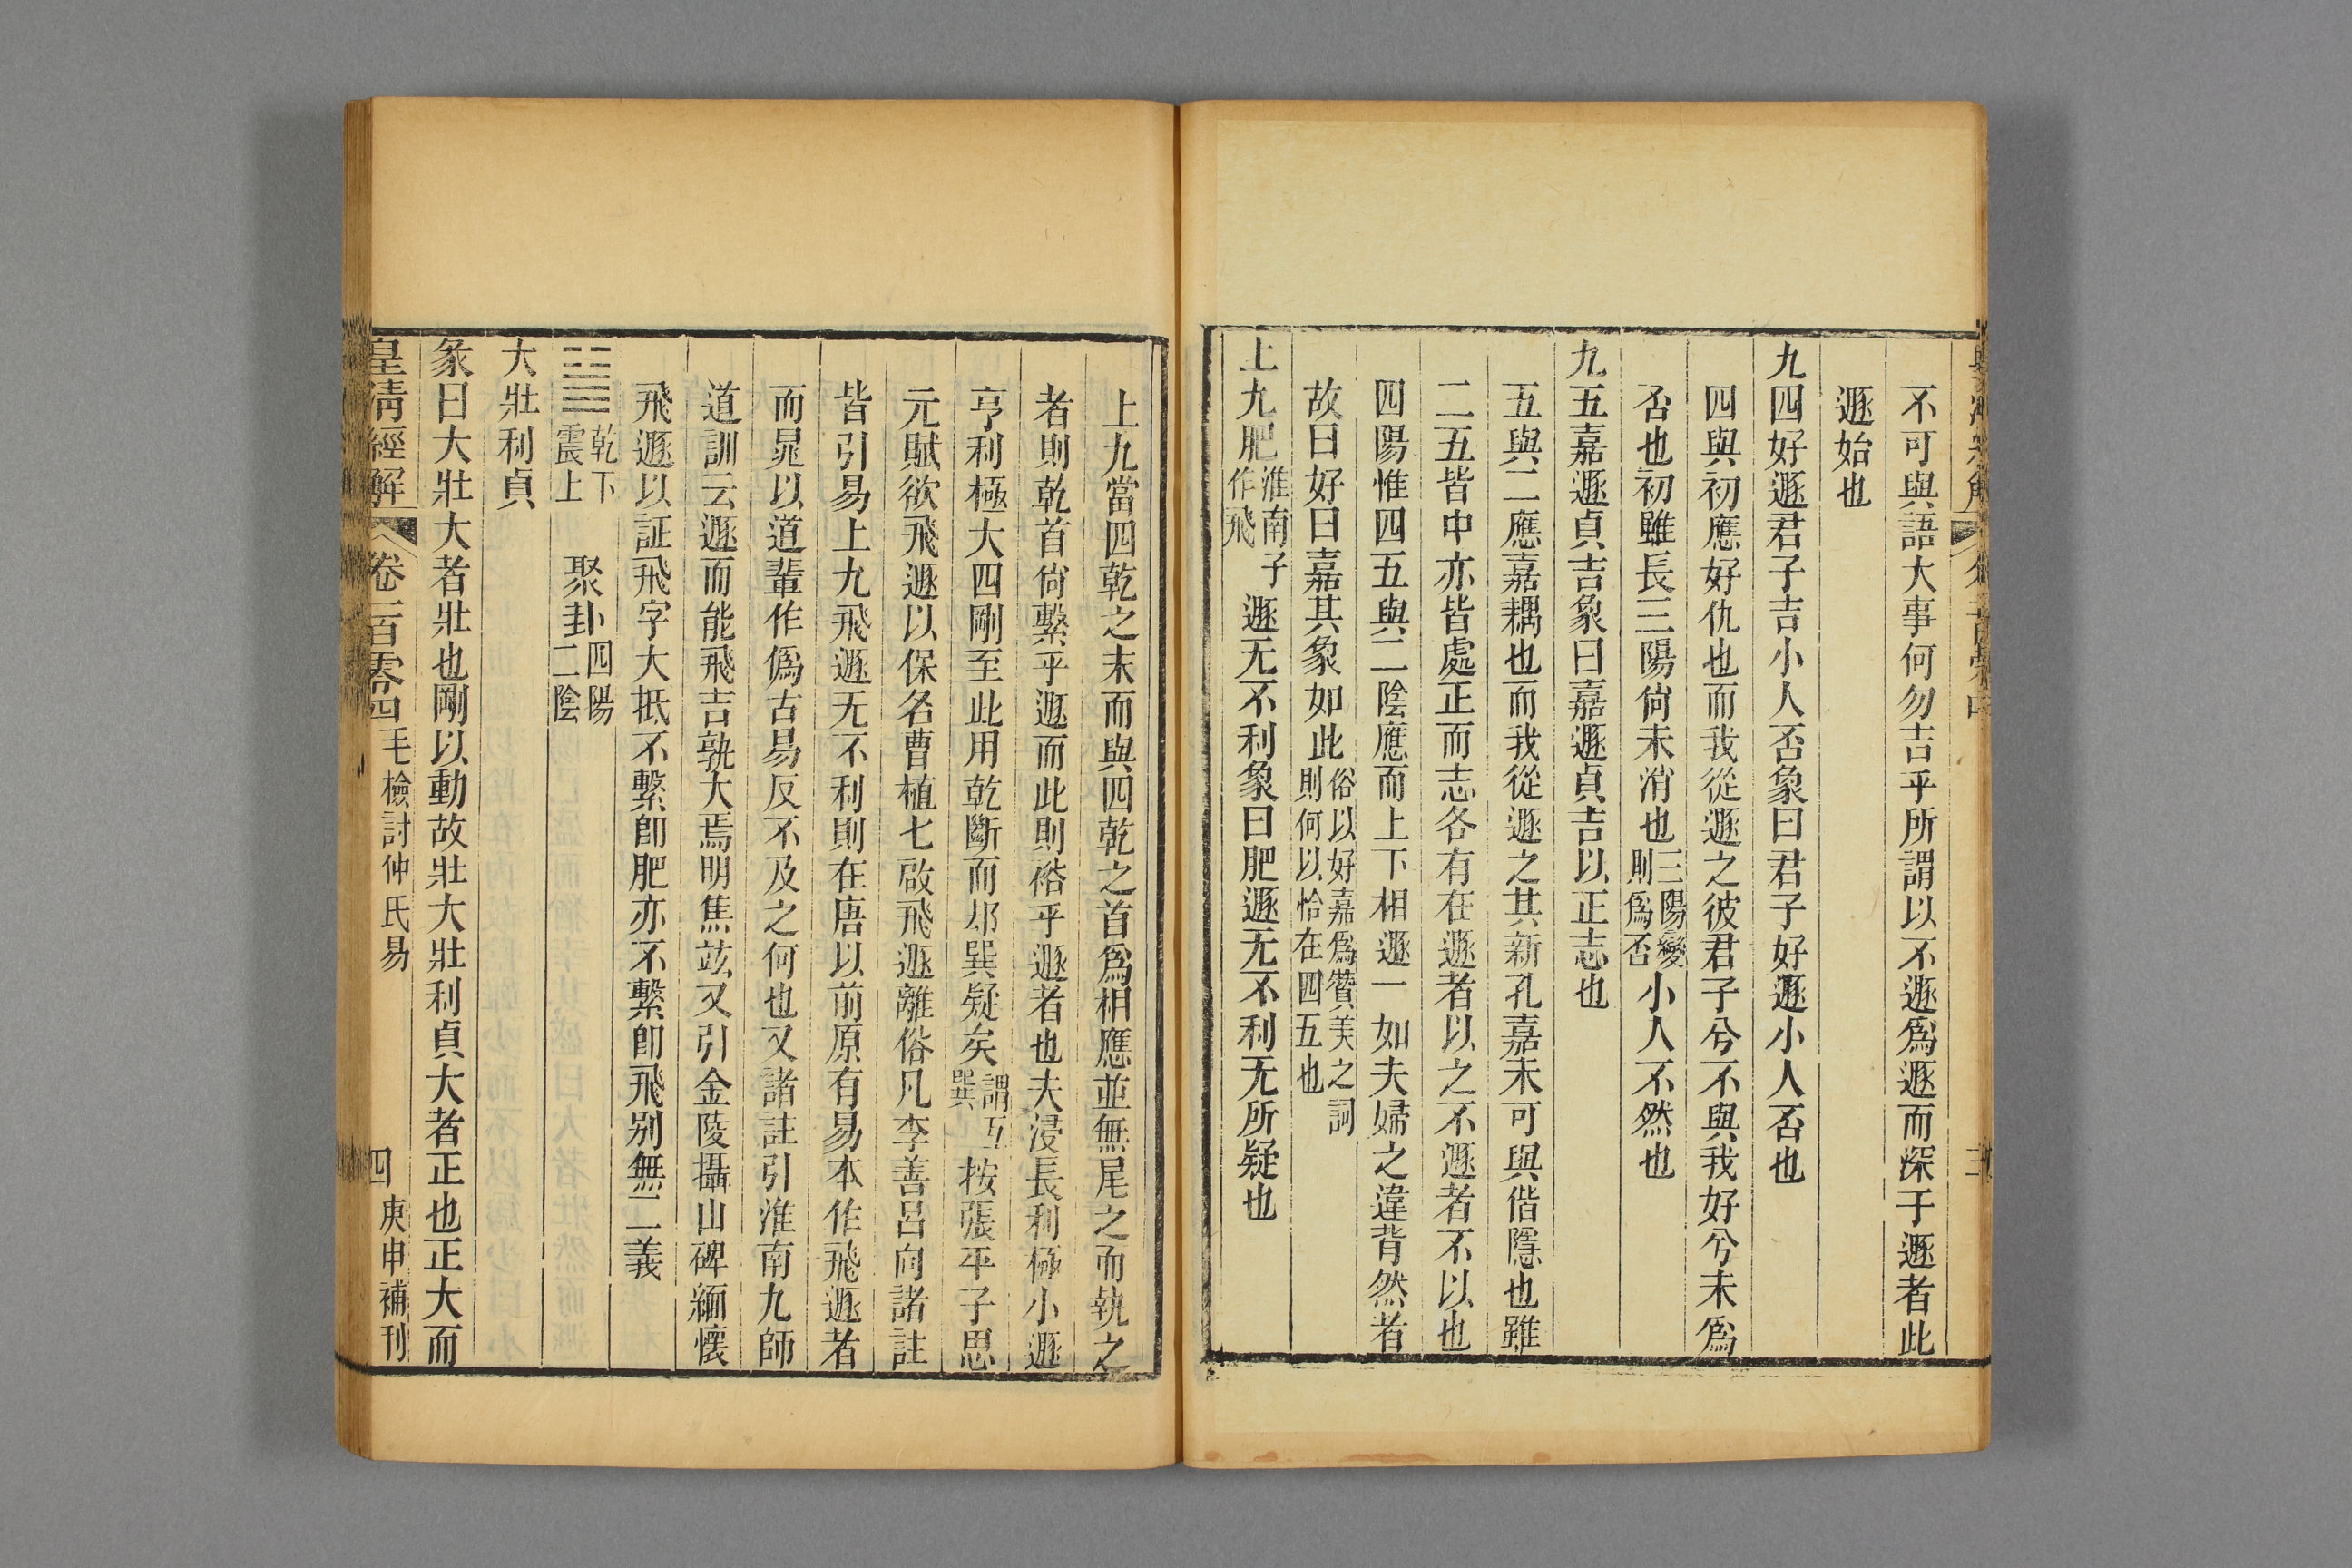 不可與語大事何勿吉乎所謂以不遯爲遯而深于遯者此
遯始也
九四好遯君子吉小人否象曰君子好遯小人否也
四與初應好仇也而我從遯之彼君子兮不與我好兮未爲
否也初雖長三陽尙未消也三陽變則爲否小人不然也
九五嘉遯貞吉象曰嘉遯貞吉以正志也
五與二應嘉耦也而我從遯之其新孔嘉未可與偕隱也雖
二五皆中亦皆處正而志各有在遯者以之不遯者不以也
四陽惟四五與二陰應而上下相遯一如夫婦之違背然者
故曰好曰嘉其象如此俗以好嘉爲贊美之詞則何以恰在四五也
上九肥淮南子作飛遯无不利象曰肥遯无不利无所疑也
上九當四乾之末而與四乾之首爲相應並無尾之而執之
者則乾首尙繫乎遯而此則裕乎遯者也夫浸長利極小遯
亨利極大四剛至此用乾斷而却巽疑矣謂互巽按張平子思
元賦欲飛遯以保名曹植七啟飛遯離俗凡李善呂向諸註
皆引易上九飛遯无不利則在唐以前原有易本作飛遯者
而晁以道輩作僞古易反不及之何也又諸註引淮南九師
道訓云遯而能飛吉孰大焉明焦竑又引金陵攝山碑緬懷
飛遯以証飛字大抵不繫卽肥亦不繫卽飛别無二義
乾下震上 聚卦四陽二陰
大壯利貞
彖曰大壯大者壯也剛以動故壯大壯利貞大者正也正大而
皇清經解 卷一百零四 毛檢討仲氏易 四 庚申補刊